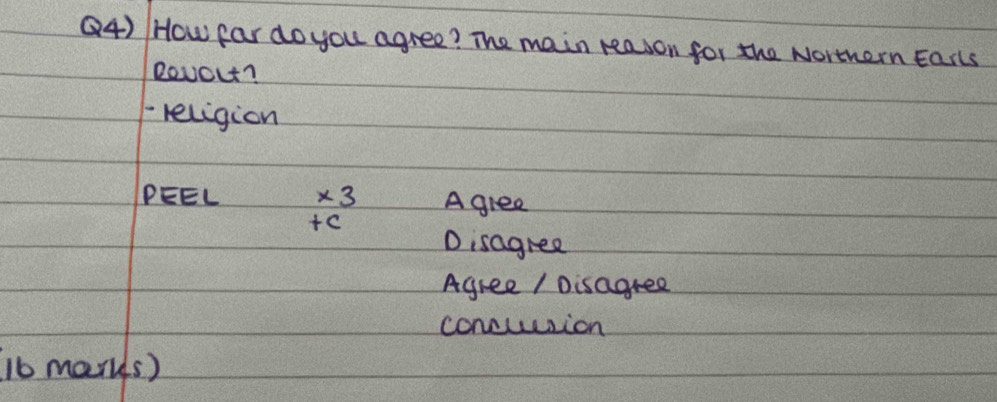 Q4) How far do you agree? The main reason for the Northern Earls
Revolt?
- religion
PEEL x3 Agree
+c
Disagree
Agree / Disagree
conclusion
(16 marks)